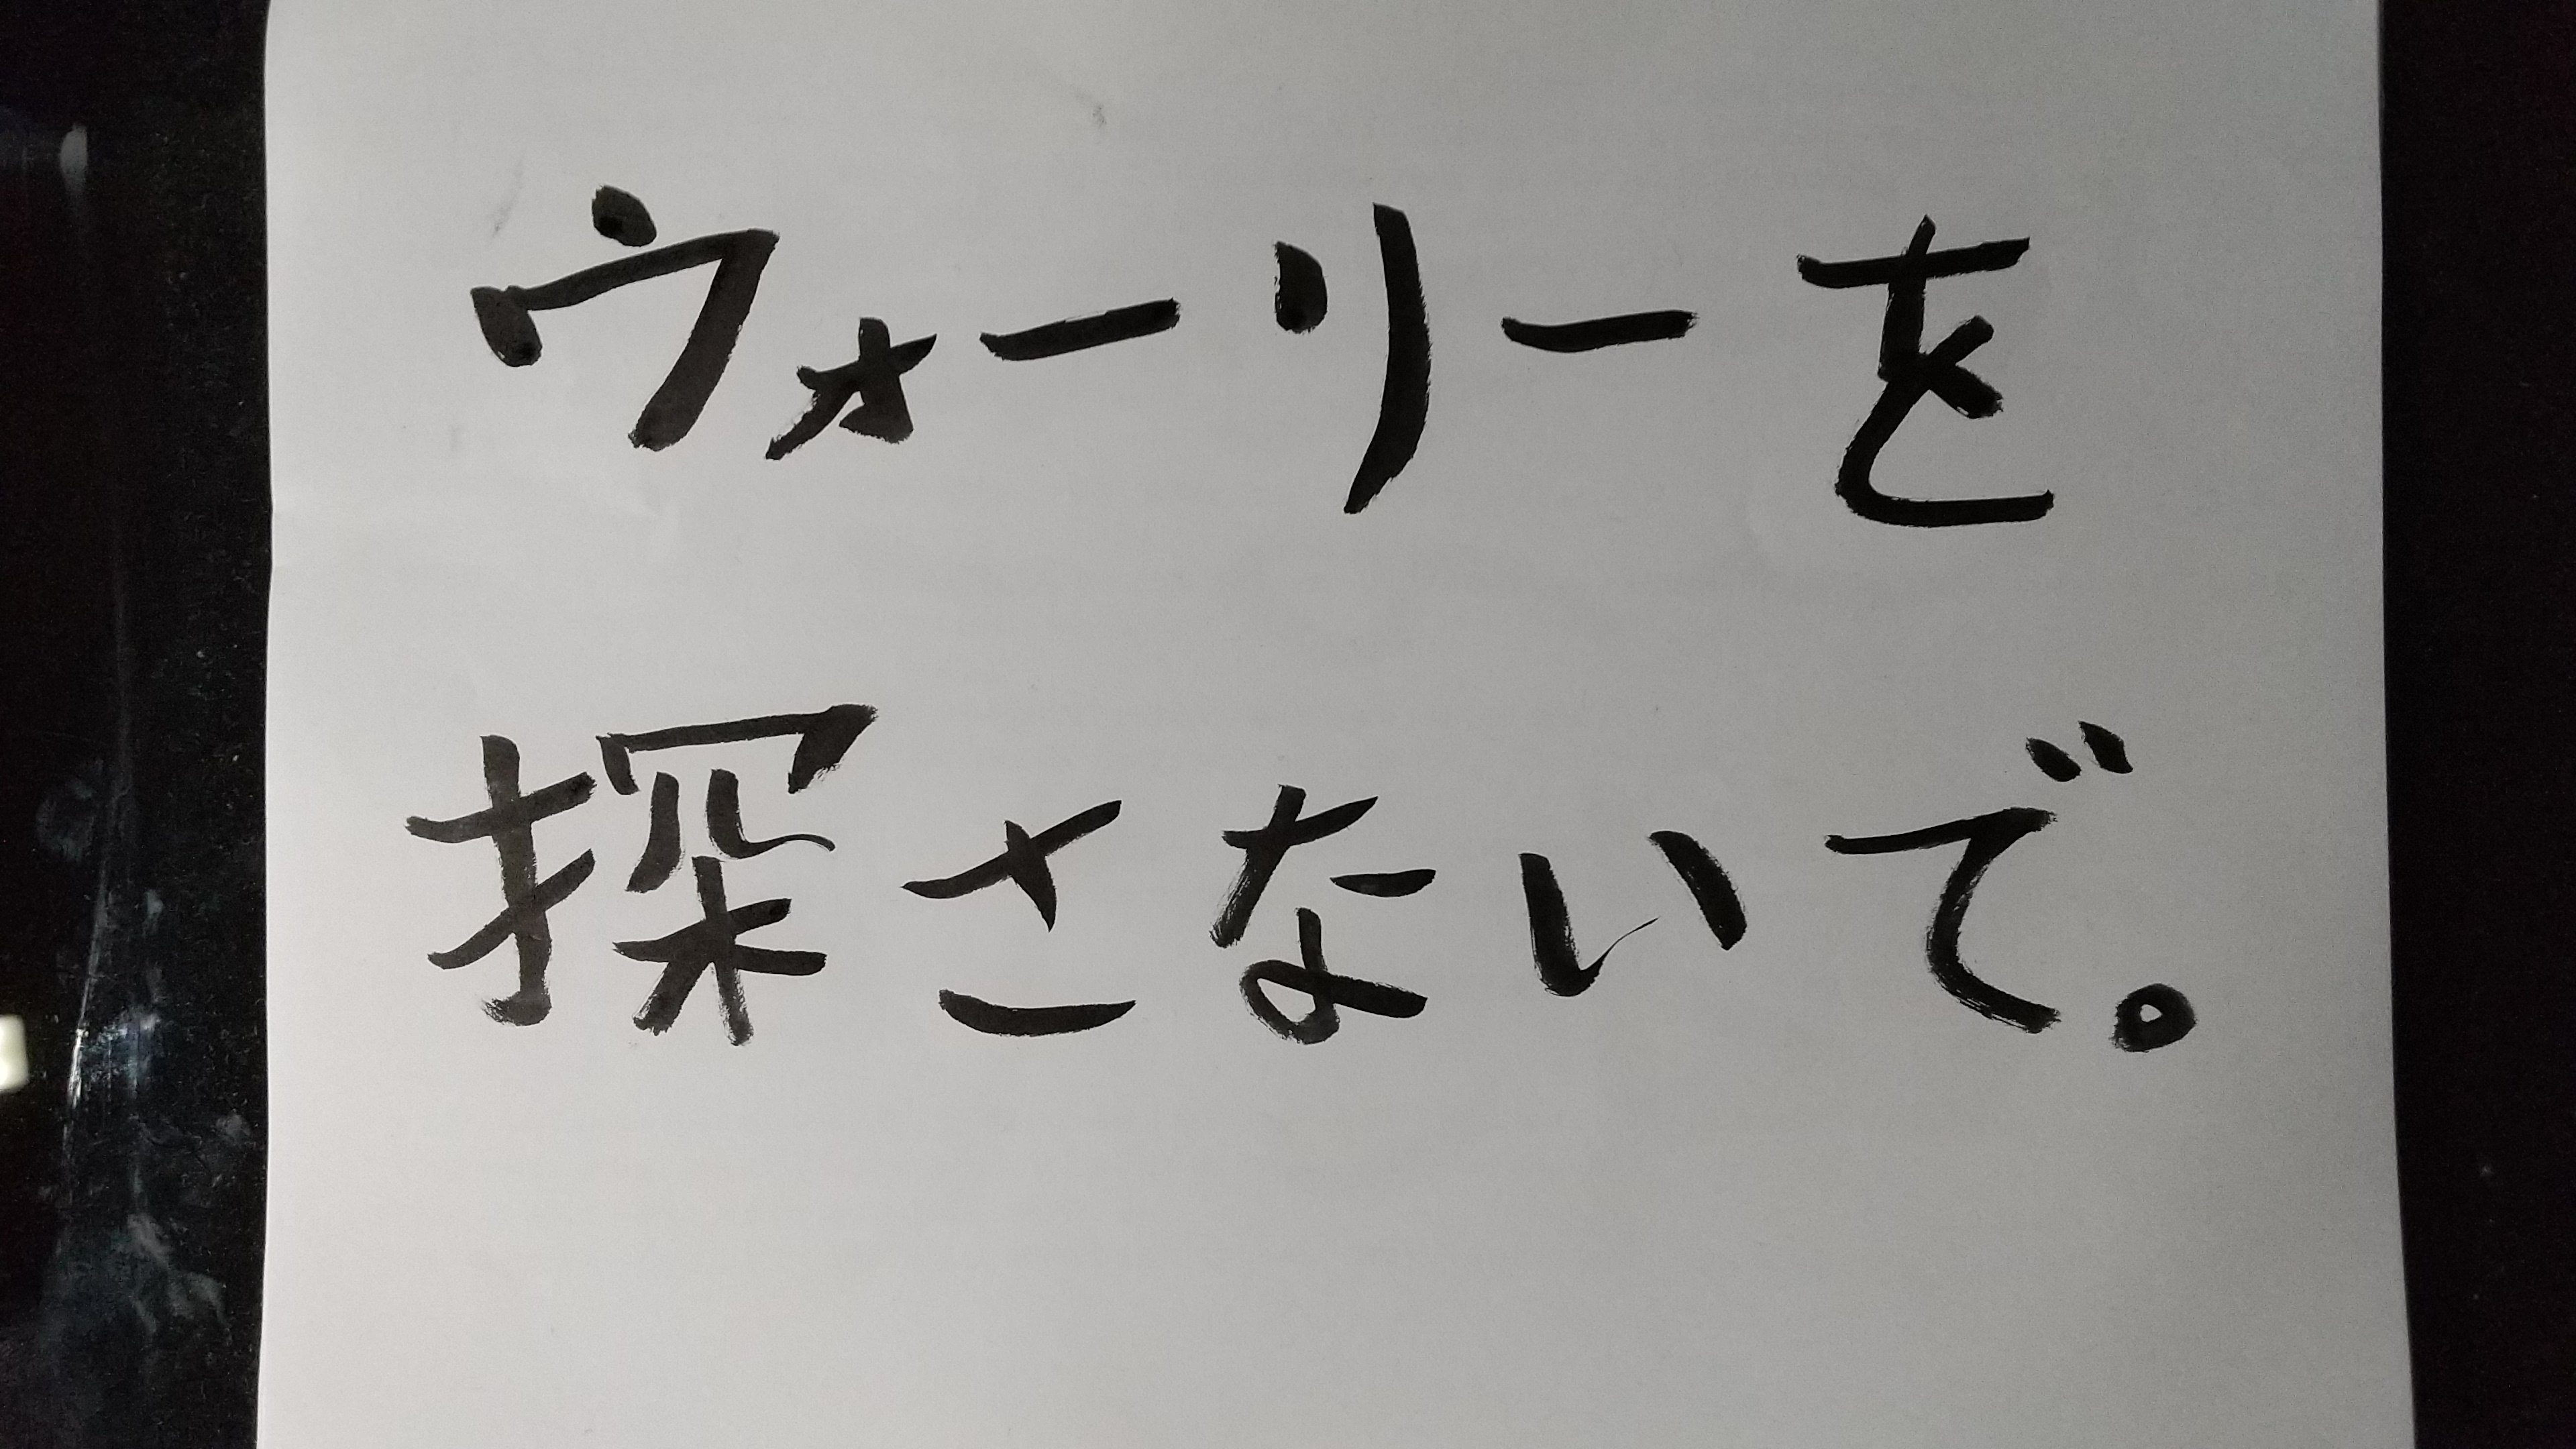 ウォーリーを
探さないで。